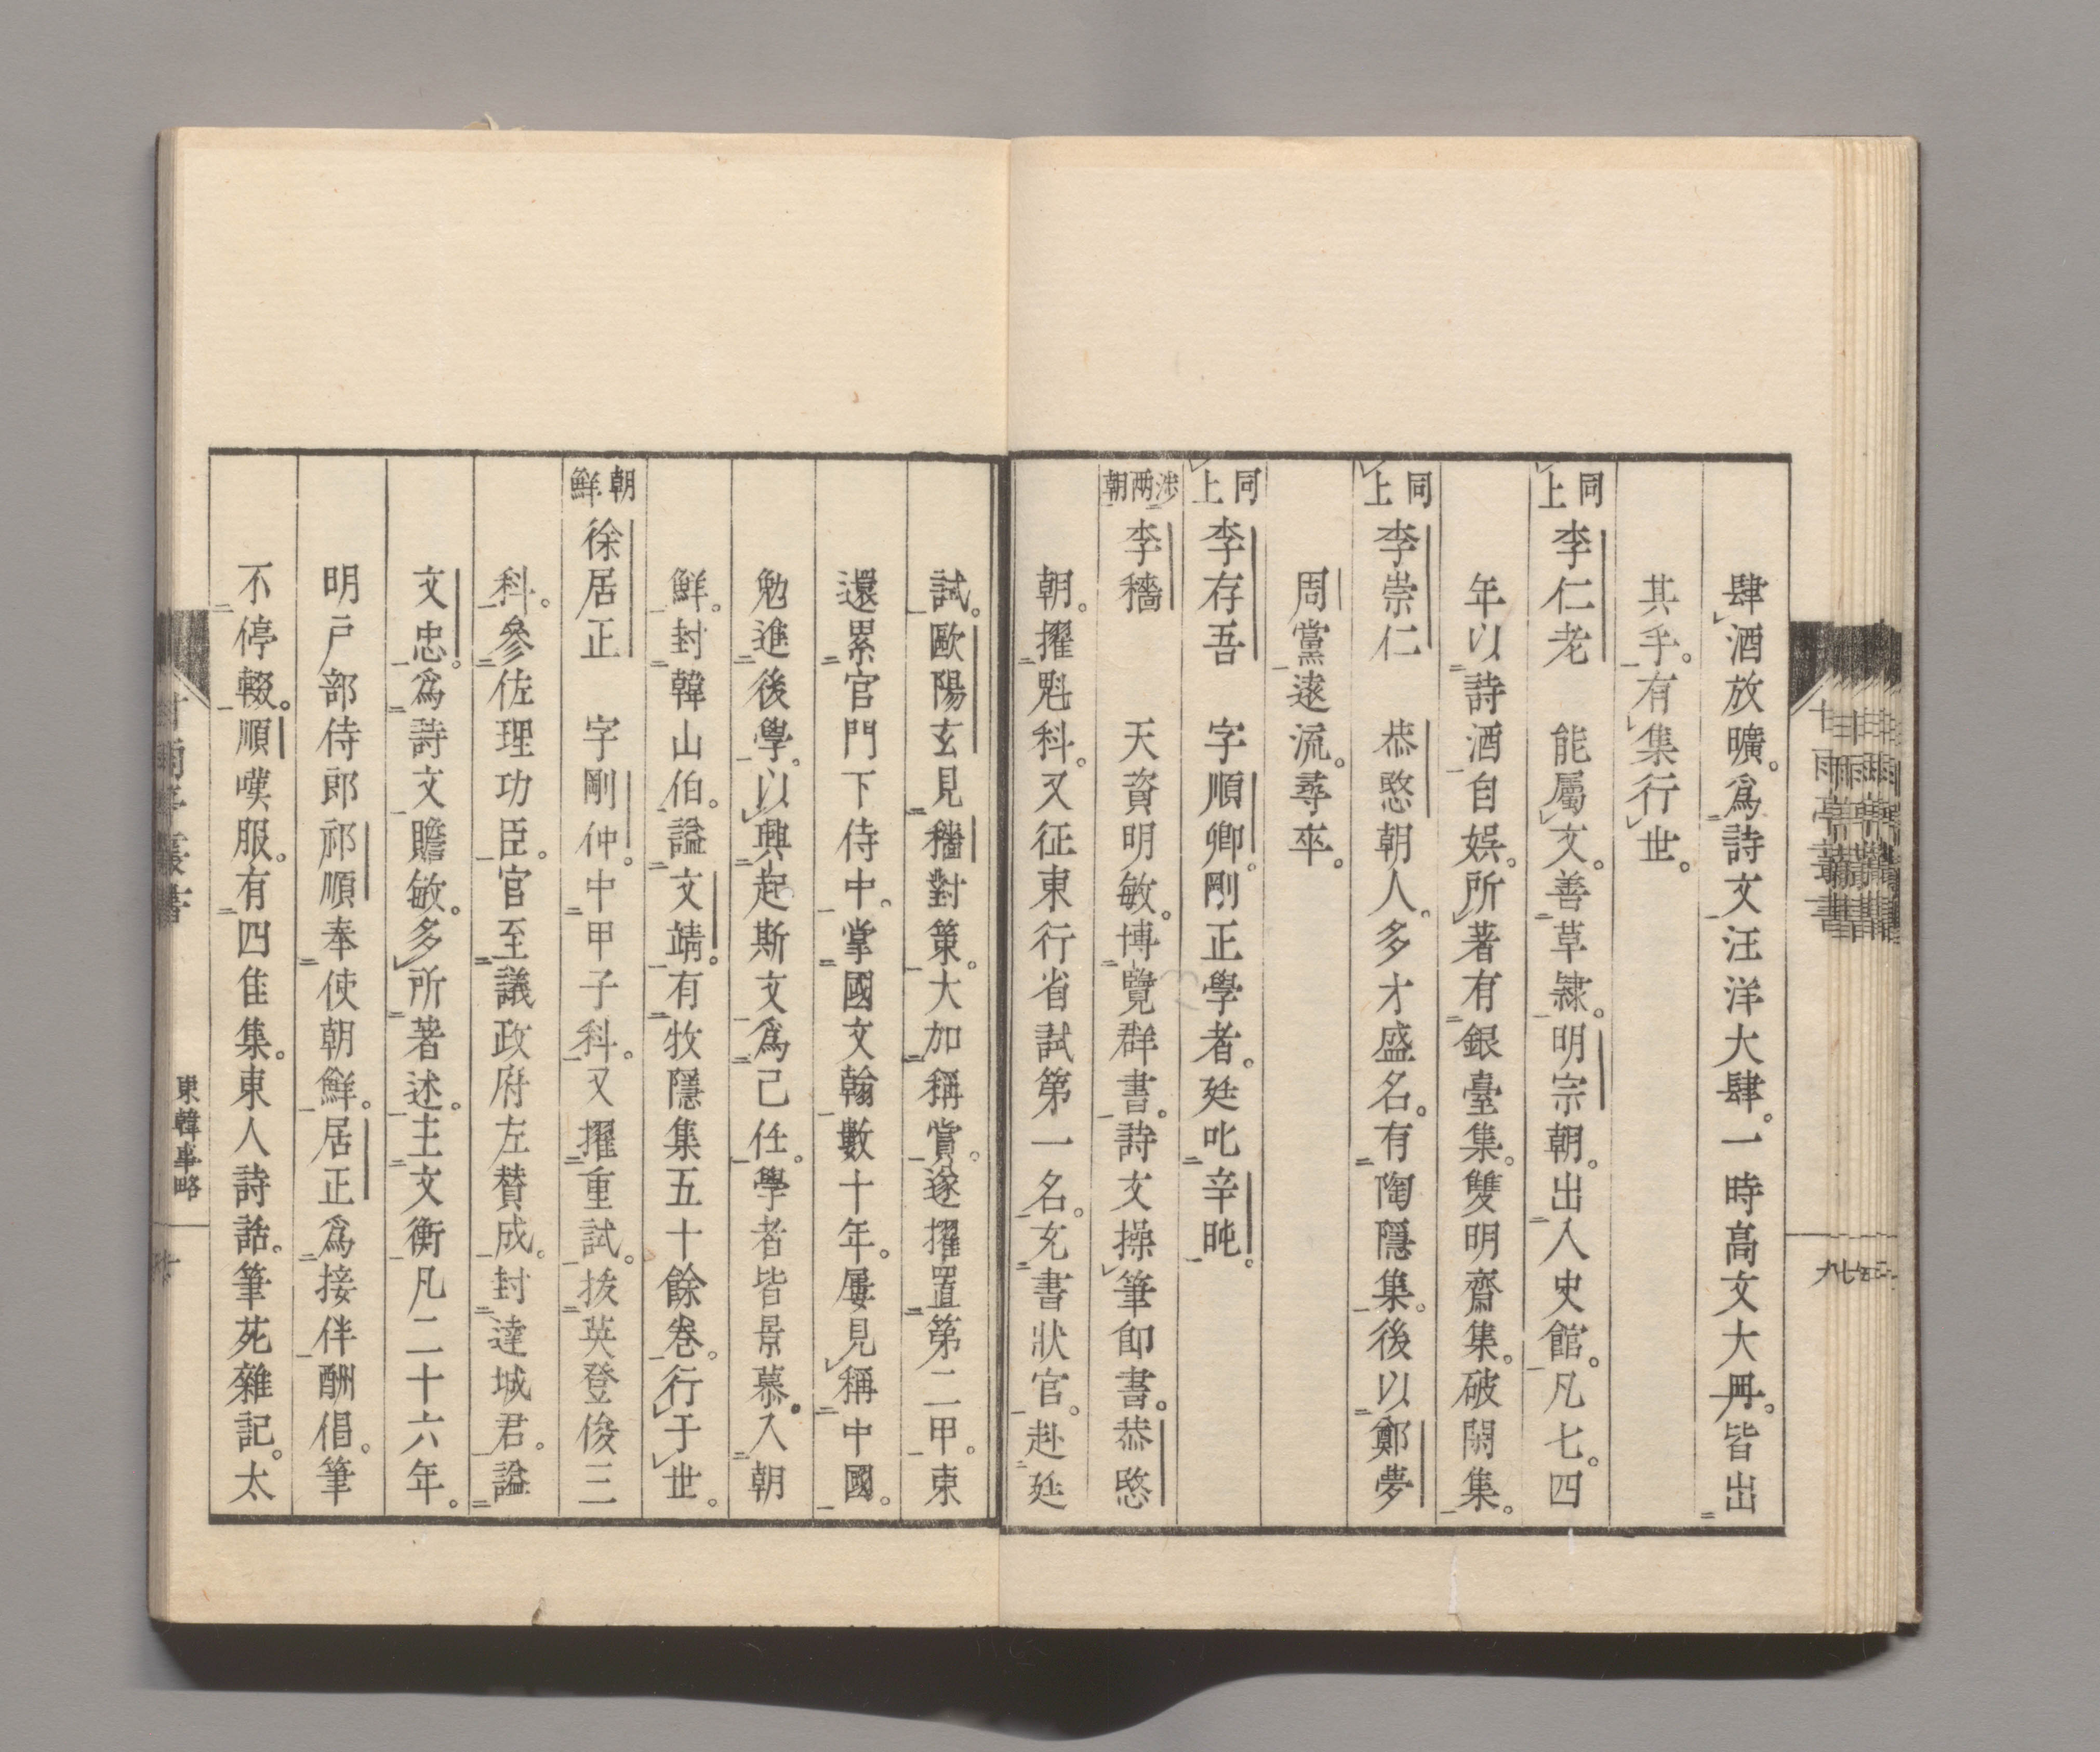 肆酒放曠。爲詩文汪洋大肆。一時高文大冊。皆出
其手。有集行世。
同上 李仁老 能屬文。善草隷。明宗朝。出入史館。凡七。四
年以詩酒自娯。所著有銀臺集。雙明齋集。破閑集。
同上 李崇仁 恭愍朝人。多才盛名。有陶隱集。後以鄭夢
周黨遠流。尋卒。
同上 李存吾 字順卿。剛正學者。廷叱辛旽。
渉兩朝 李穡 天資明敏。博覽群書。詩文操筆卽書。恭愍
朝。擢魁科。又征東行省試第一名。充書狀官。赴廷
試。歐陽玄見穡對策。大加稱賞。遂擢置第二甲。東
還累官門下侍中。掌國文翰數十年。屢見稱中國。
勉進後學。以興起斯文爲己任。學者皆景慕。入朝
鮮。封韓山伯。謚文靖。有牧隱集五十餘卷。行于世。
朝鮮 徐居正 字剛仲。中甲子科。又擢重試。拔英登俊三
科。參佐理功臣。官至議政府左賛成。封達城君。謚
文忠。爲詩文贍敏。多所著述。主文衡凡二十六年。
明戸部侍郎祁順奉使朝鮮。居正爲接伴酬倡。筆
不停輟。順嘆服。有四佳集。東人詩話。筆苑雜記。太
東韓事略